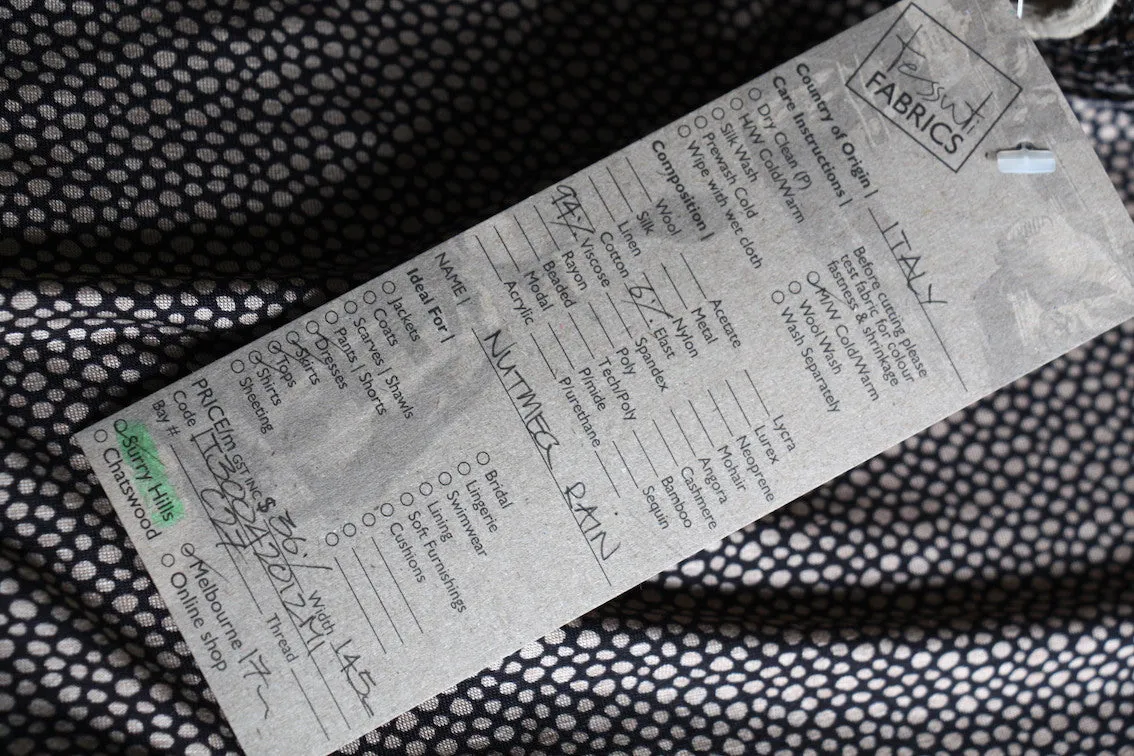 tessuti
FABRICS
Country of Origin | ITALY
Care Instructions |
Before cutting please
test fabric for colour
fastness & shrinkage
Dry Clean (P)
H/W Cold/Warm
Silk Wash
Prewash Cold
Wipe with wet cloth
M/W Cold/Warm
Wool Wash
Wash Separately
Composition |
Wool Acetate Lycra
Silk Metal Lurex
Linen Nylon Neoprene
Cotton 6% Elast Mohair
94% Viscose Spandex Angora
Rayon Poly Cashmere
Beaded Tech/Poly Bamboo
Modal P/mide Sequin
Acrylic P/urethane
NAME | NUTMEG RAIN
Ideal For |
Jackets Bridal
Coats Lingerie
Scarves | Shawls Swimwear
Pants | Shorts Lining
Dresses Soft Furnishings
Skirts Cushions
Tops
Shirts
Sheeting
PRICE/m GST INC $ 36/ Width 145
Code
Bay # Thread
Surry Hills Melbourne 17
Chatswood Online shop